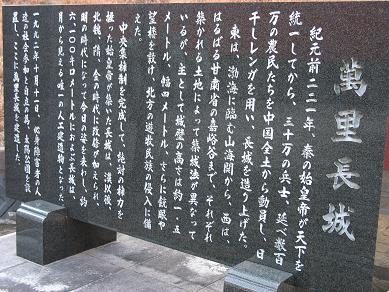 萬里長城
紀元前二二一年、秦の始皇帝が天下を
統一してから、三十万の兵士、延べ数百
万の農民たちを中国全土から動員し、日
干しレンガを用い、長城を造り上げた。
東は、渤海に臨む山海関から、西は、
はるばる甘粛省の嘉峪谷まで、それぞれ
築かれる土地によって築城法が異なって
いるが、主として城壁の高さは約一一五
メートル、幅四メートル、さらに銃眼や
望楼を設け、北方の遊牧民族の侵入に備
えた。
中央集権制を完成して、絶対の権力を
握った始皇帝が築いた長城は、漢以後、
北魏、隋、金の時代に改修が加えられ、
明の時代になって今日の姿を表わし、約
六一〇〇キロメートルにおよぶ長城は、
月から見える唯一の人工建造物となった。
一九九二年十月十一日